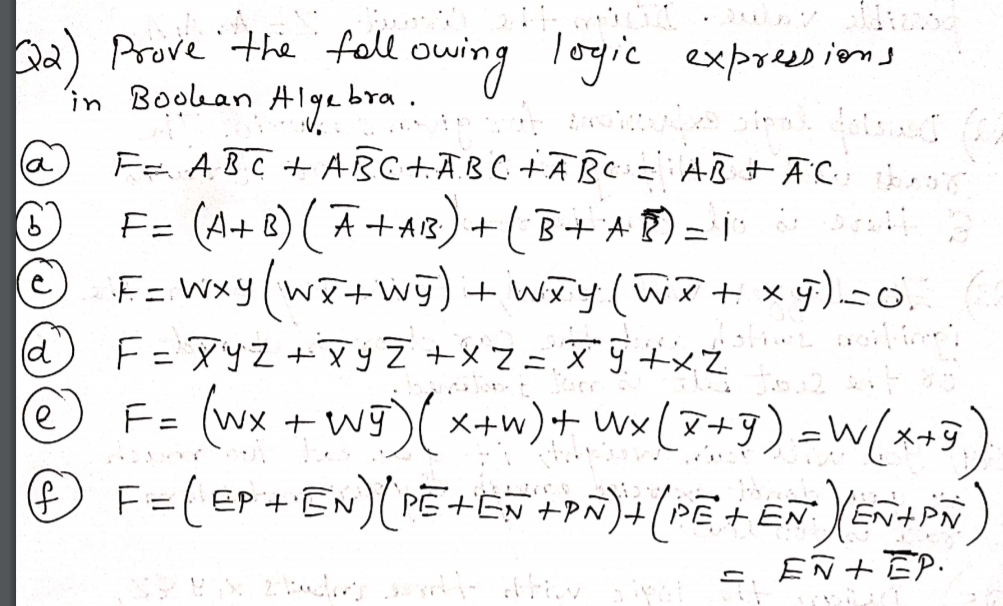 Q2) Prove the following logic expressions
in Boolean Algebra.
(a) F = A B̅ C̅ + A B̅ C + A̅ B C + A̅ B̅ C = A B̅ + A̅ C.
(b) F = (A + B) ( A̅ + AB ) + ( B̅ + A B̅ ) = 1
(c) F = Wxy ( W x̅ + W y̅ ) + W x̅ y ( W̅ x̅ + x y̅ ) = 0.
(d) F = x̅ y z + x̅ y z̅ + x z = x̅ y̅ + x z
(e) F = (Wx + W y̅ ) ( x + w ) + Wx ( x̅ + y̅ ) = W ( x + y̅ )
(f) F = ( EP + E̅ N ) ( P E̅ + E N̅ + P N̅ ) + ( P E̅ + E N̅ ) ( E N̅ + P N̅ )
= E N̅ + E̅ P.